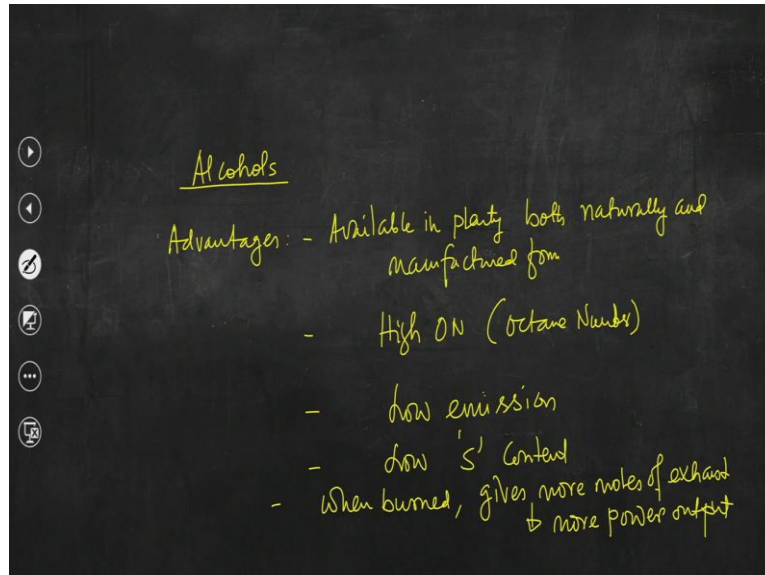 Alcohols
Advantages: - Available in plenty both naturally and
manufactured form
- High ON (Octane Number)
- Low emission
- Low 'S' Content
- When burned, gives more moles of exhaust
↓ more power output